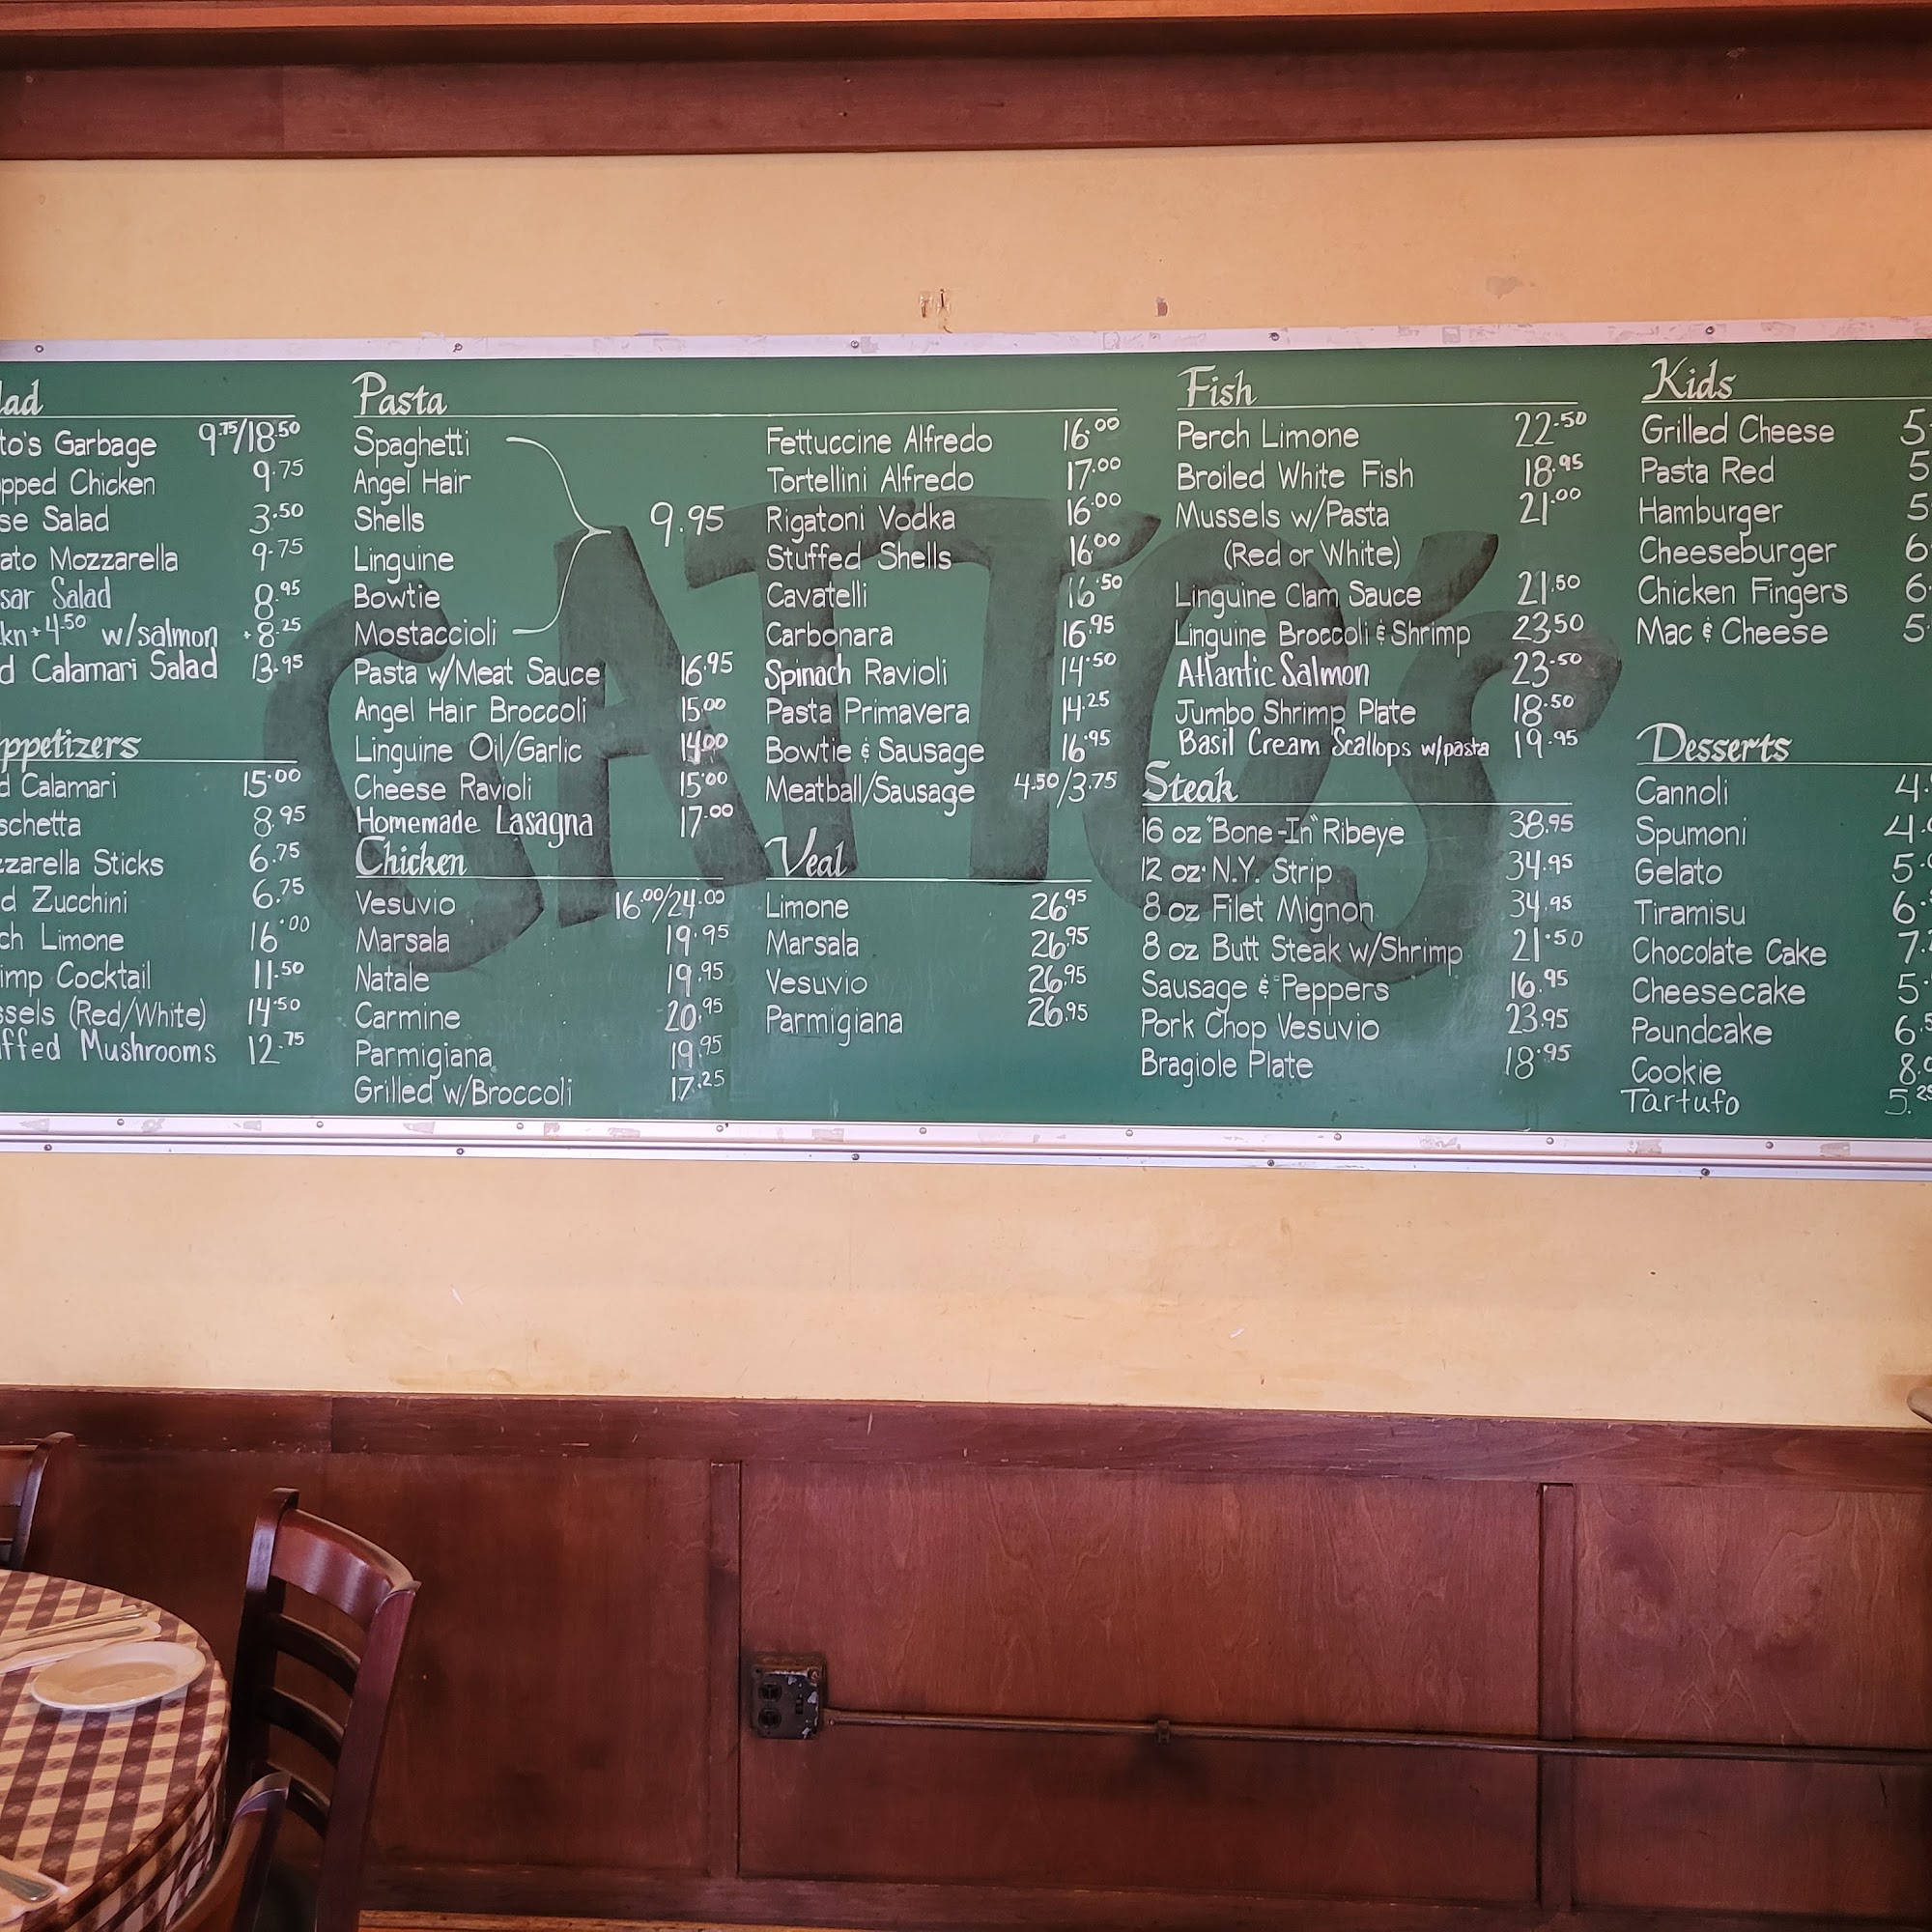 lad
to's Garbage 9.75/18.50
pped Chicken 9.75
se Salad 3.50
ato Mozzarella 9.75
sar Salad 8.95
kn+4.50 w/salmon +8.25
d Calamari Salad 13.95
ppetizers
d Calamari 15.00
schetta 8.95
zzarella Sticks 6.75
d Zucchini 6.75
ch Limone 16.00
imp Cocktail 11.50
ssels (Red/White) 14.50
ffed Mushrooms 12.75
Pasta
Spaghetti
Angel Hair
Shells
9.95
Linguine
Bowtie
Mostaccioli
Pasta w/Meat Sauce 16.95
Angel Hair Broccoli 15.00
Linguine Oil/Garlic 14.00
Cheese Ravioli 15.00
Homemade Lasagna 17.00
Fettuccine Alfredo 16.00
Tortellini Alfredo 17.00
Rigatoni Vodka 16.00
Stuffed Shells 16.00
Cavatelli 16.50
Carbonara 16.95
Spinach Ravioli 14.50
Pasta Primavera 14.25
Bowtie & Sausage 16.95
Meatball/Sausage 4.50/3.75
Chicken
Vesuvio 16.00/24.00
Marsala 19.95
Natale 19.95
Carmine 20.95
Parmigiana 19.95
Grilled w/Broccoli 17.25
Veal
Limone 26.95
Marsala 26.95
Vesuvio 26.95
Parmigiana 26.95
Fish
Perch Limone 22.50
Broiled White Fish 18.95
Mussels w/Pasta 21.00
(Red or White)
Linguine Clam Sauce 21.50
Linguine Broccoli & Shrimp 23.50
Atlantic Salmon 23.50
Jumbo Shrimp Plate 18.50
Basil Cream Scallops w/pasta 19.95
Steak
16 oz "Bone-In" Ribeye 38.95
12 oz. N.Y. Strip 34.95
8 oz Filet Mignon 34.95
8 oz Butt Steak w/Shrimp 21.50
Sausage & Peppers 16.95
Pork Chop Vesuvio 23.95
Bragiole Plate 18.95
Kids
Grilled Cheese 5
Pasta Red 5
Hamburger 5
Cheeseburger 6
Chicken Fingers 6
Mac & Cheese 5
Desserts
Cannoli 4.
Spumoni 4.
Gelato 5.
Tiramisu 6.
Chocolate Cake 7.
Cheesecake 5.
Poundcake 6.5
Cookie 8.
Tartufo 5.25
GATTO'S